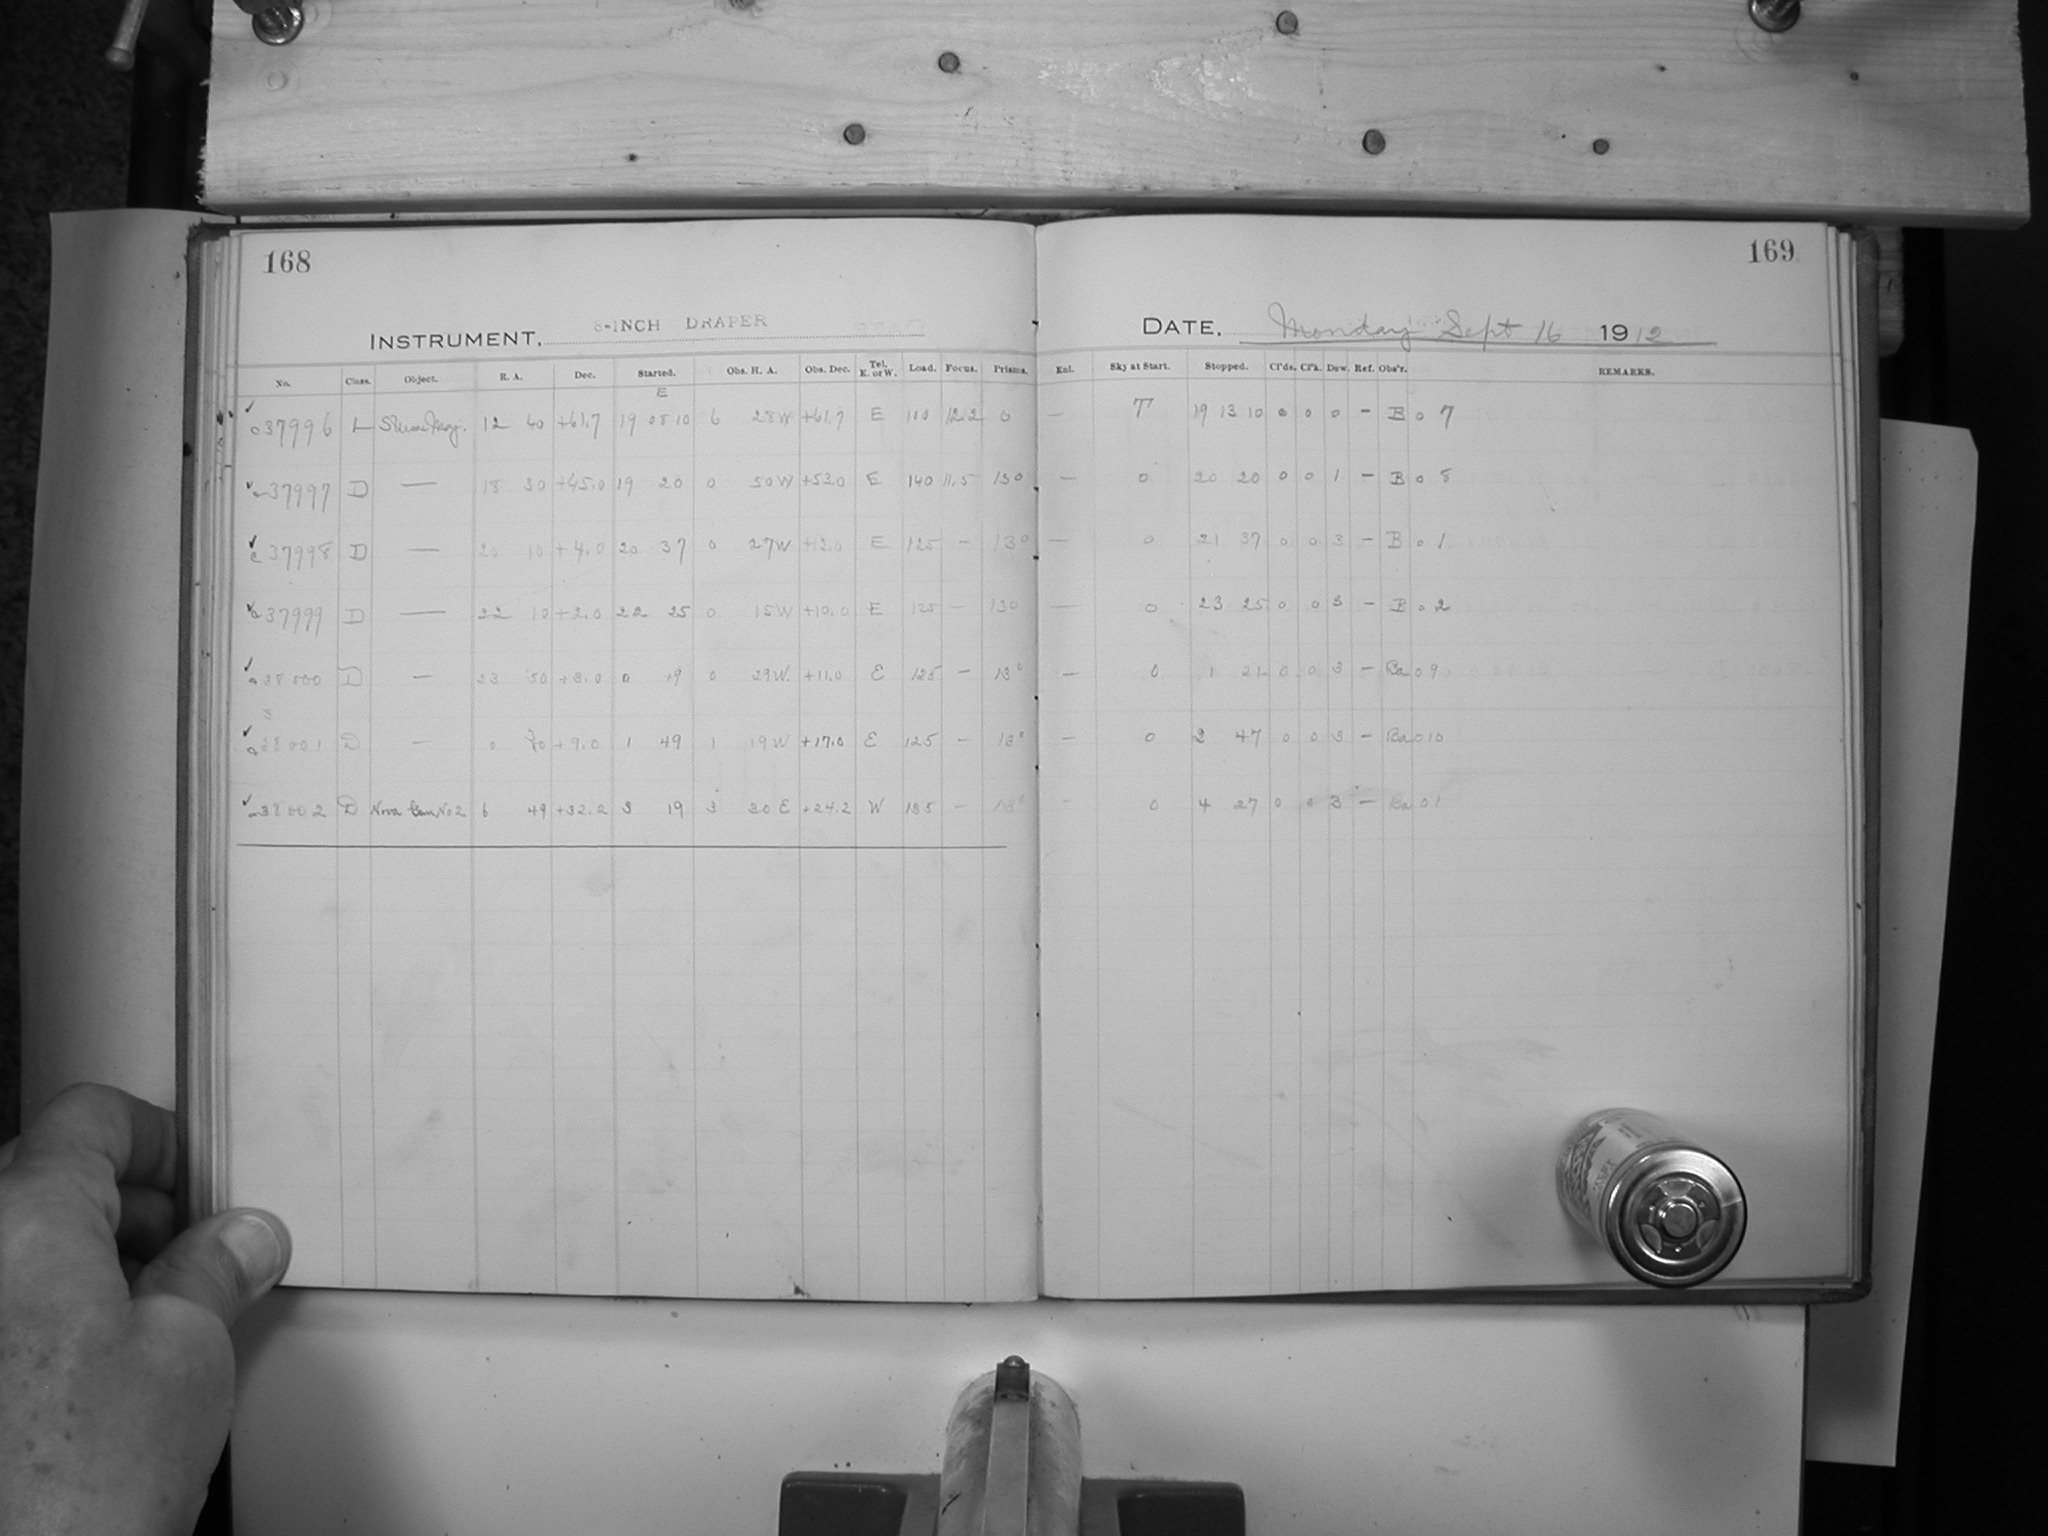 168
169
INSTRUMENT, 8-INCH DRAPER
DATE, Monday Sept 16 1912
No. Class. Object. R. A. Dec. Started. Obs. H. A. Obs. Dec. Tel. E. or W. Load. Focus. Prisms. Enl. Sky at Start. Stopped. Cl'ds. Cl'k. Dew. Ref. Obs'r. REMARKS.
E
37996 L 12 40 +61.7 19 08 10 6 28W +61.7 E 100 12.2 0 — T 19 13 10 0 0 0 – B 0 7
37997 D — 18 30 +45.0 19 20 0 50W +53.0 E 140 11.5 13° — 0 20 20 0 0 1 – B 0 8
37998 D — 20 10 +4.0 20 37 0 27W +12.0 E 125 – 13° — 0 21 37 0 0 3 – B 0 1
37999 D — 22 10 +2.0 22 25 0 15W +10.0 E 125 – 13° — 0 23 25 0 0 3 – B 0 2
38000 D — 23 50 +3.0 0 19 0 29W. +11.0 E 125 – 13° — 0 1 21 0 0 3 – Ba 0 9
38001 D — 0 +9.0 1 49 1 19W +17.0 E 125 – 13° — 0 2 47 0 0 3 – Ba 0 10
38002 D Nova Gem No 2 6 49 +32.2 3 19 3 30 E +24.2 W 135 – 13° – 0 4 27 0 0 3 – Ba 0 1